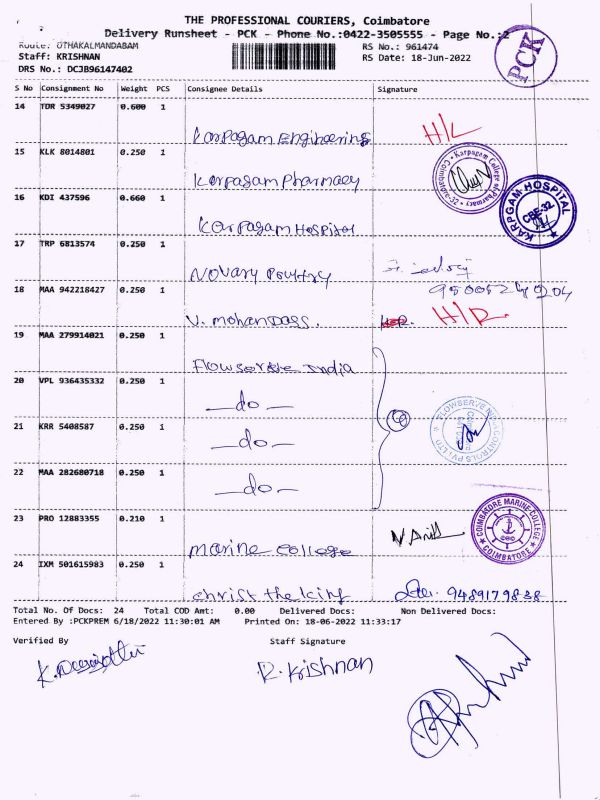 THE PROFESSIONAL COURIERS, Coimbatore
Delivery Runsheet - PCK - Phone No.:0422-3505555 - Page No.:2
PCK
Route: OTHAKALMANDABAM
RS No.: 961474
Staff: KRISHNAN
RS Date: 18-Jun-2022
DRS No.: DCJB96147402
S No Consignment No Weight PCS Consignee Details Signature
14 TDR 5349027 0.600 1
Karpagam Engineering H/L
15 KLK 8014801 0.250 1
Karpagam Pharmacy
Karpagam College of Pharmacy Coimbatore-32
16 KDI 437596 0.660 1
Karpagam Hospital
KARPGAM HOSPITAL CBE-32
17 TRP 6813574 0.250 1
Novary Poultry
18 MAA 942218427 0.250 1
V. Mohandass. H/R
19 MAA 279914021 0.250 1
Flowserve India
20 VPL 936435332 0.250 1
—do—
21 KRR 5408587 0.250 1
—do—
22 MAA 282680718 0.250 1
—do—
④
23 PRO 12883355 0.210 1
Marine College
COIMBATORE MARINE COLLEGE COIMBATORE
24 IXM 501615983 0.250 1
Christ the King 9489179838
Total No. Of Docs: 24 Total COD Amt: 0.00 Delivered Docs: Non Delivered Docs:
Entered By :PCKPREM 6/18/2022 11:30:01 AM Printed On: 18-06-2022 11:33:17
Verified By Staff Signature
R. Krishnan